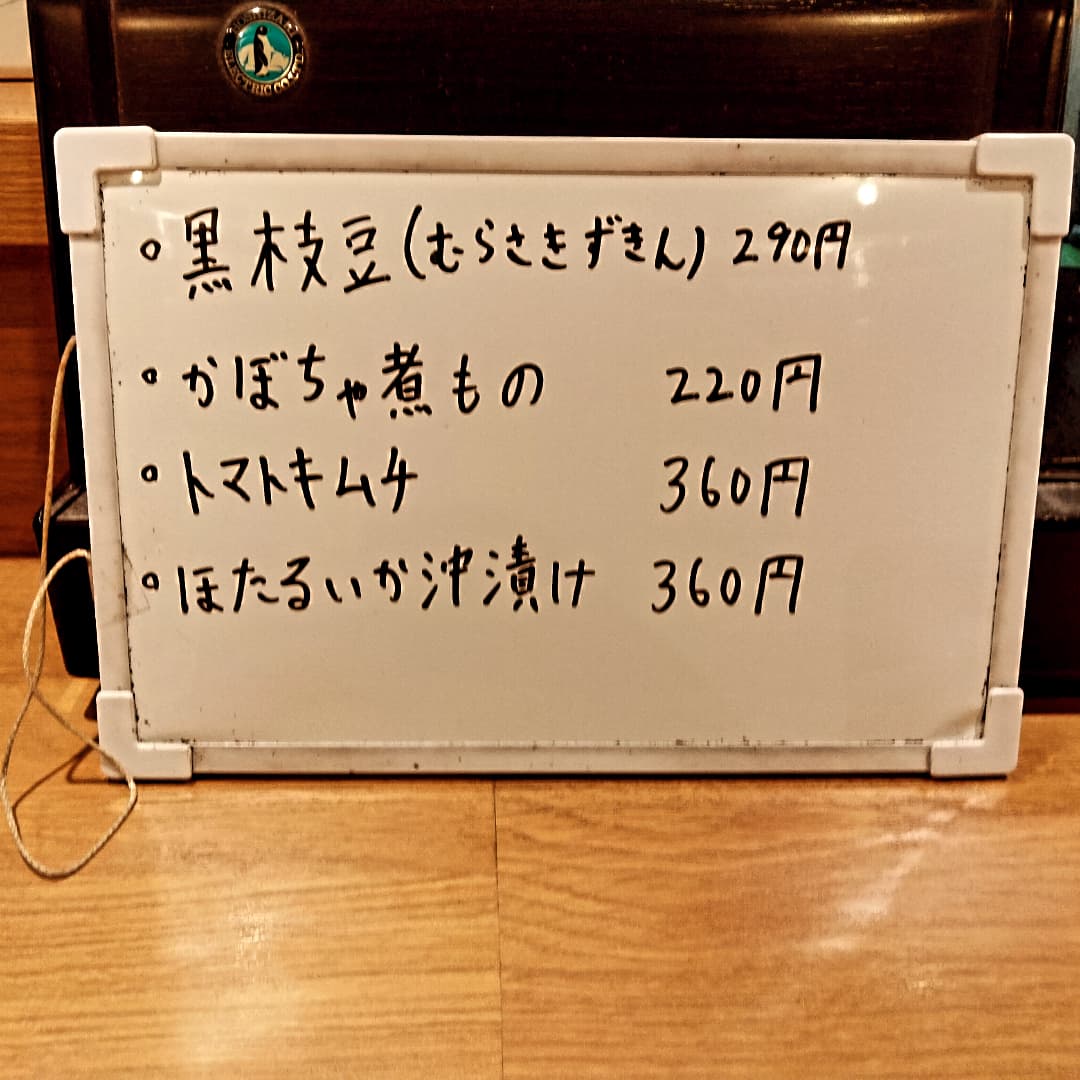 HOSHIZAKI
ELECTRIC CO.,LTD.
○黒枝豆(むらさきずきん) 290円
○かぼちゃ煮もの 220円
○トマトキムチ 360円
○ほたるいか沖漬け 360円